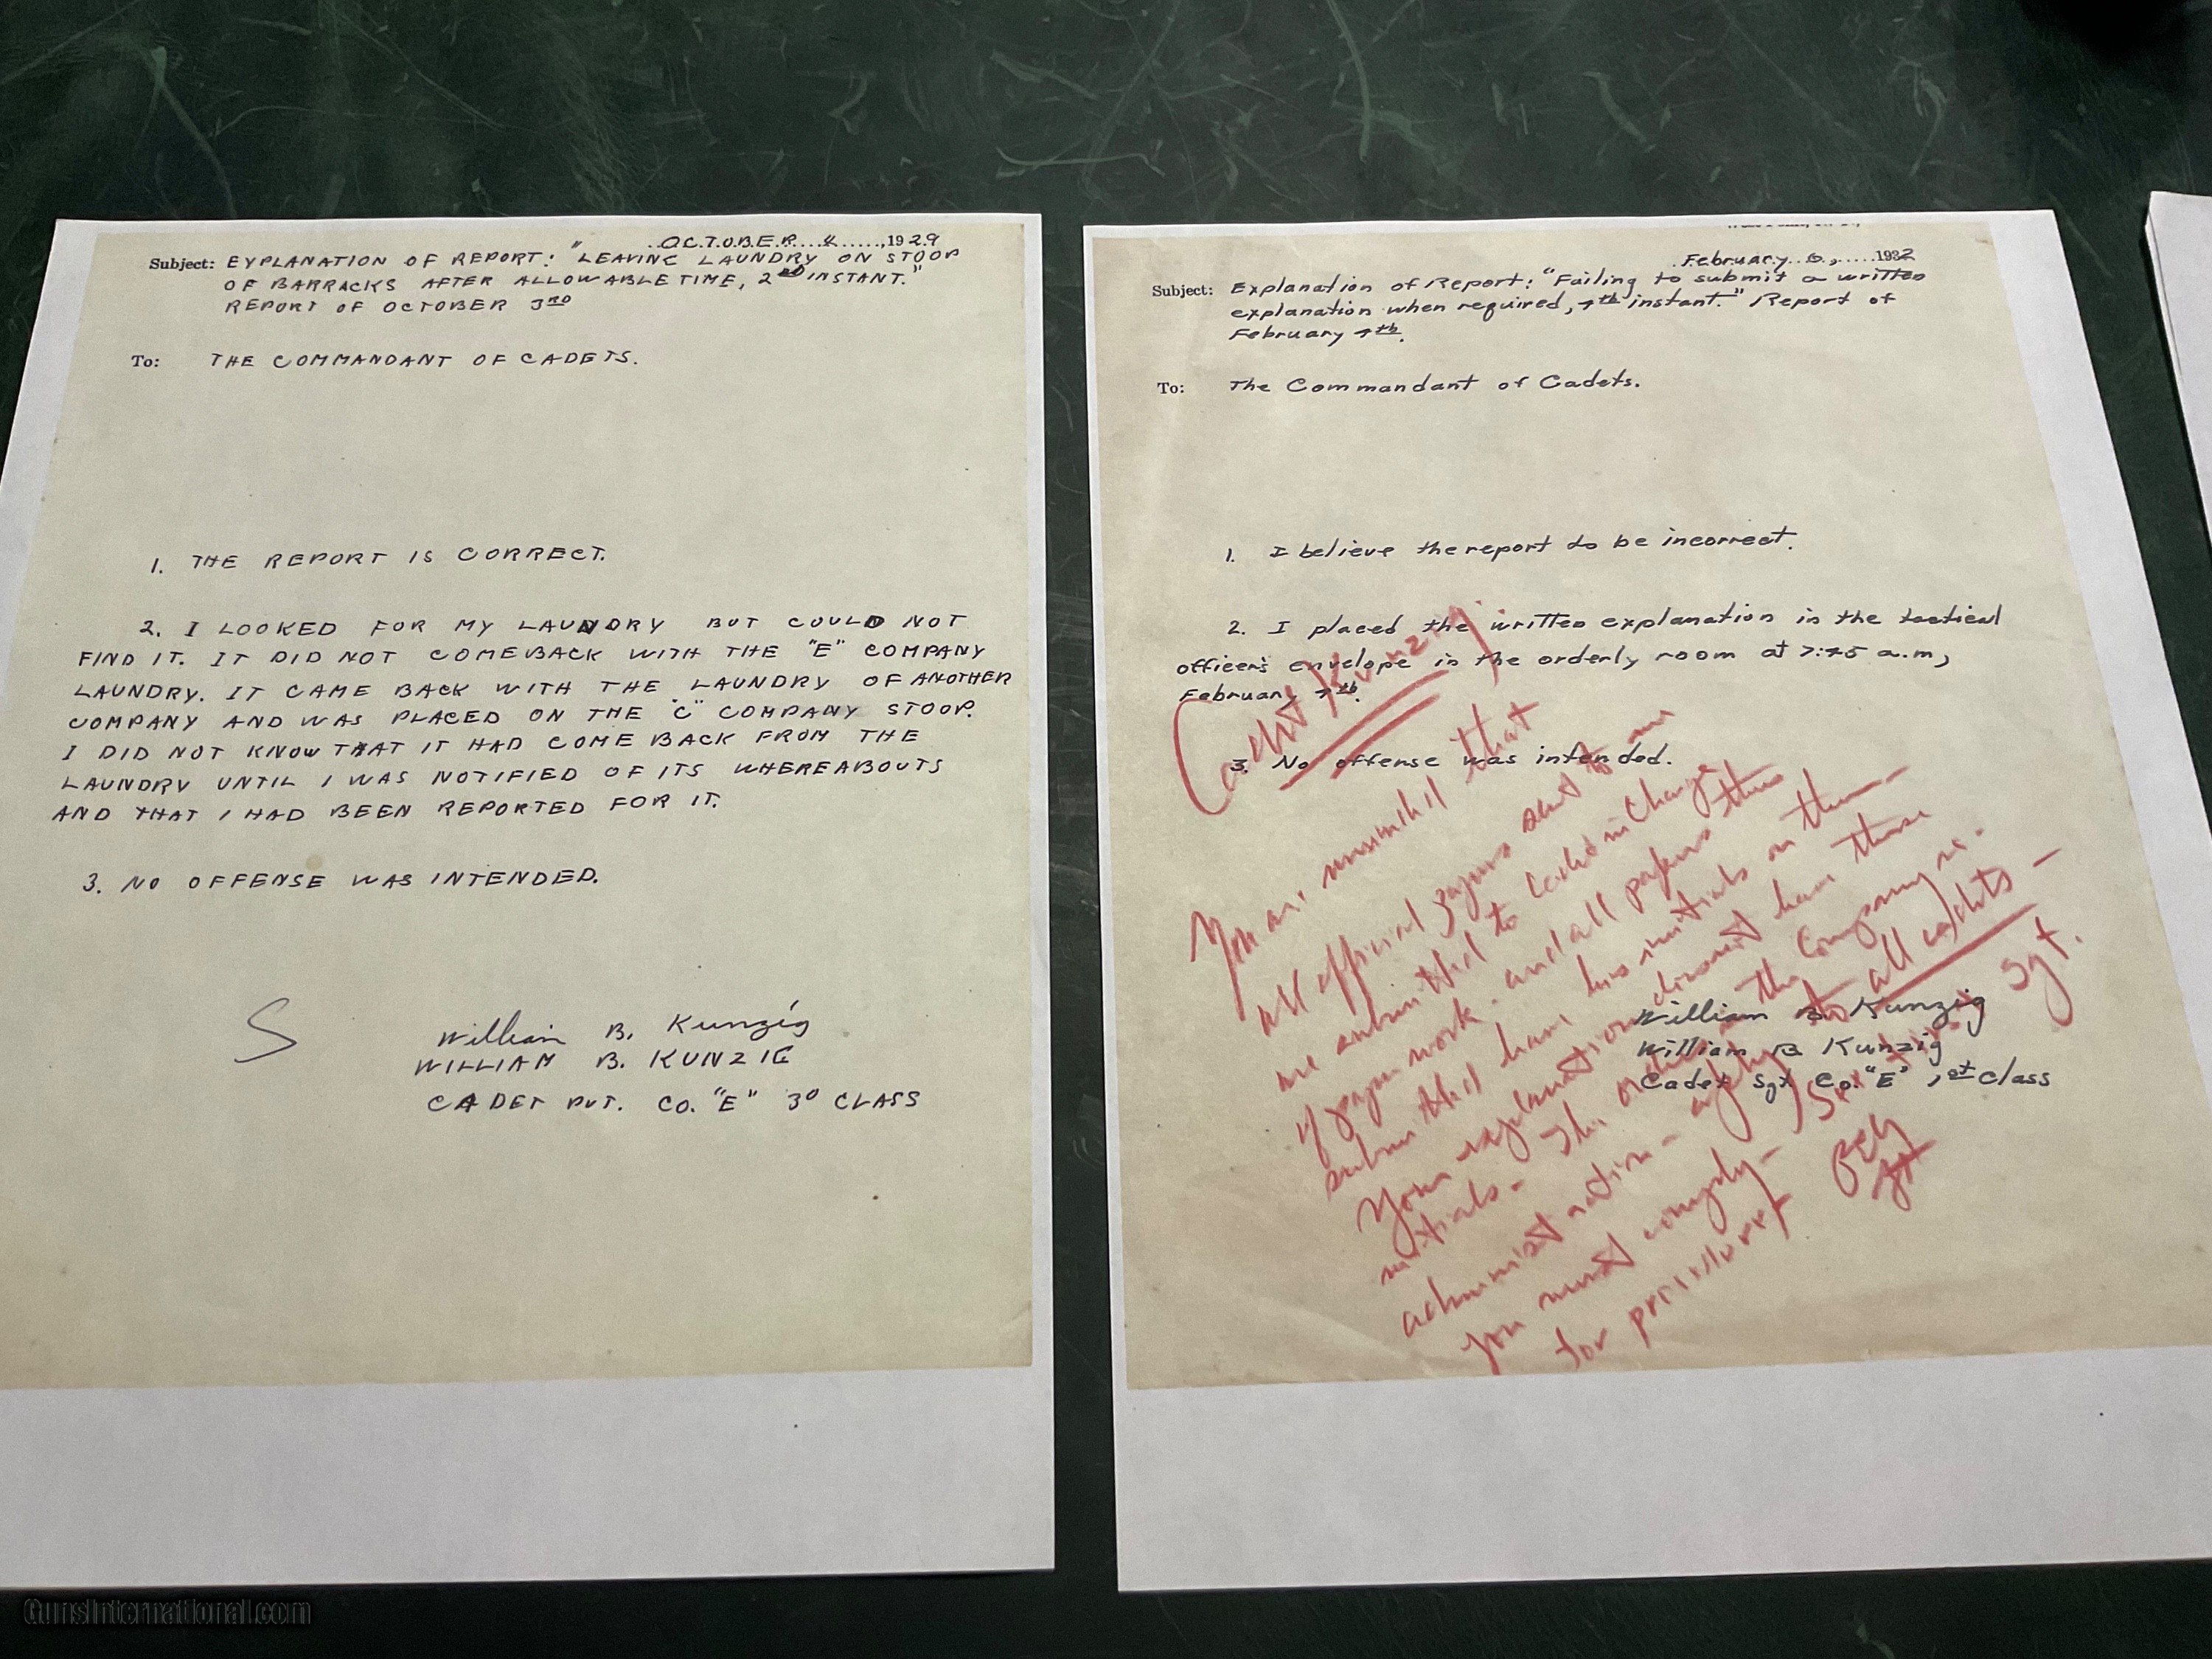 OCTOBER 4, 1929
Subject: EXPLANATION OF REPORT: "LEAVING LAUNDRY ON STOOP
OF BARRACKS AFTER ALLOWABLE TIME, 2ND INSTANT."
REPORT OF OCTOBER 3RD
To: THE COMMANDANT OF CADETS.
1. THE REPORT IS CORRECT.
2. I LOOKED FOR MY LAUNDRY BUT COULD NOT
FIND IT. IT DID NOT COME BACK WITH THE "E" COMPANY
LAUNDRY. IT CAME BACK WITH THE LAUNDRY OF ANOTHER
COMPANY AND WAS PLACED ON THE "C" COMPANY STOOP.
I DID NOT KNOW THAT IT HAD COME BACK FROM THE
LAUNDRY UNTIL I WAS NOTIFIED OF ITS WHEREABOUTS
AND THAT I HAD BEEN REPORTED FOR IT.
3. NO OFFENSE WAS INTENDED.
S
William B. Kunzig
WILLIAM B. KUNZIG
CADET PVT. CO. "E" 3D CLASS
February 1932
Subject: Explanation of Report: "Failing to submit a written
explanation when required, 7th instant." Report of
February 7th.
To: The Commandant of Cadets.
1. I believe the report to be incorrect.
2. I placed the written explanation in the tactical
officer's envelope in the orderly room at 7:45 a.m,
February 7th.
3. No offense was intended.
William B Kunzig
William B Kunzig
Cadet Sgt Co. "E", 1st class
(Cadet Kunzig)
You are that
all official papers sent to me
are submitted to Cadet in Charge
of papers work - and all papers thus
submitted have his initials on them -
Your explanation doesnt have these
initials - The orders in the Company re.
administration - apply to all cadets -
you must comply - See first Sgt.
for procedure
GunsInternational.com